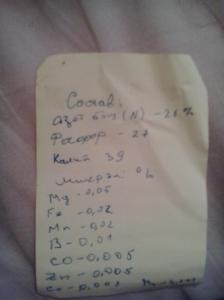 Состав.
азот общ (N) - 26%
Фосфор - 27
Калий 39
микроэл %
Mg - 0,05
Fe - 0,02
Mn - 0,02
B - 0,01
CO - 0,005
Zn - 0,005